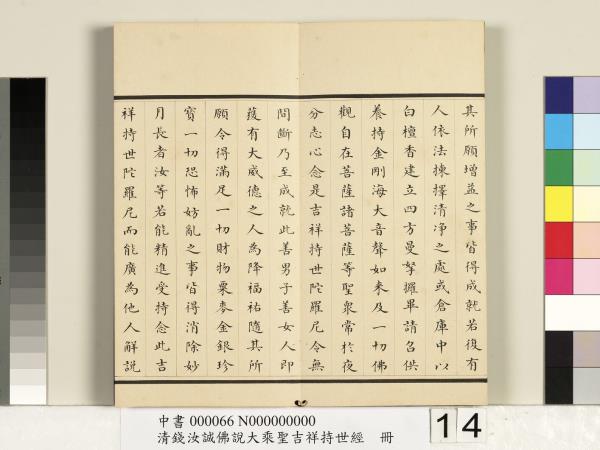 其所願增益之事皆得成就若復有
人依法揀擇清淨之處或倉庫中以
白檀香建立四方曼拏攞畢請召供
養持金剛海大音聲如來及一切佛
觀自在菩薩諸菩薩等聖衆常於夜
分志心念是吉祥持世陀羅尼令無
間斷乃至成就此善男子善女人即
獲有大威德之人為降福祐隨其所
願令得滿足一切財物粟麥金銀珍
寶一切恐怖妨亂之事皆得消除妙
月長者汝等若能精進受持念此吉
祥持世陀羅尼而能廣為他人解說
中書 000066 N000000000
清錢汝誠佛說大乘聖吉祥持世經 冊
14